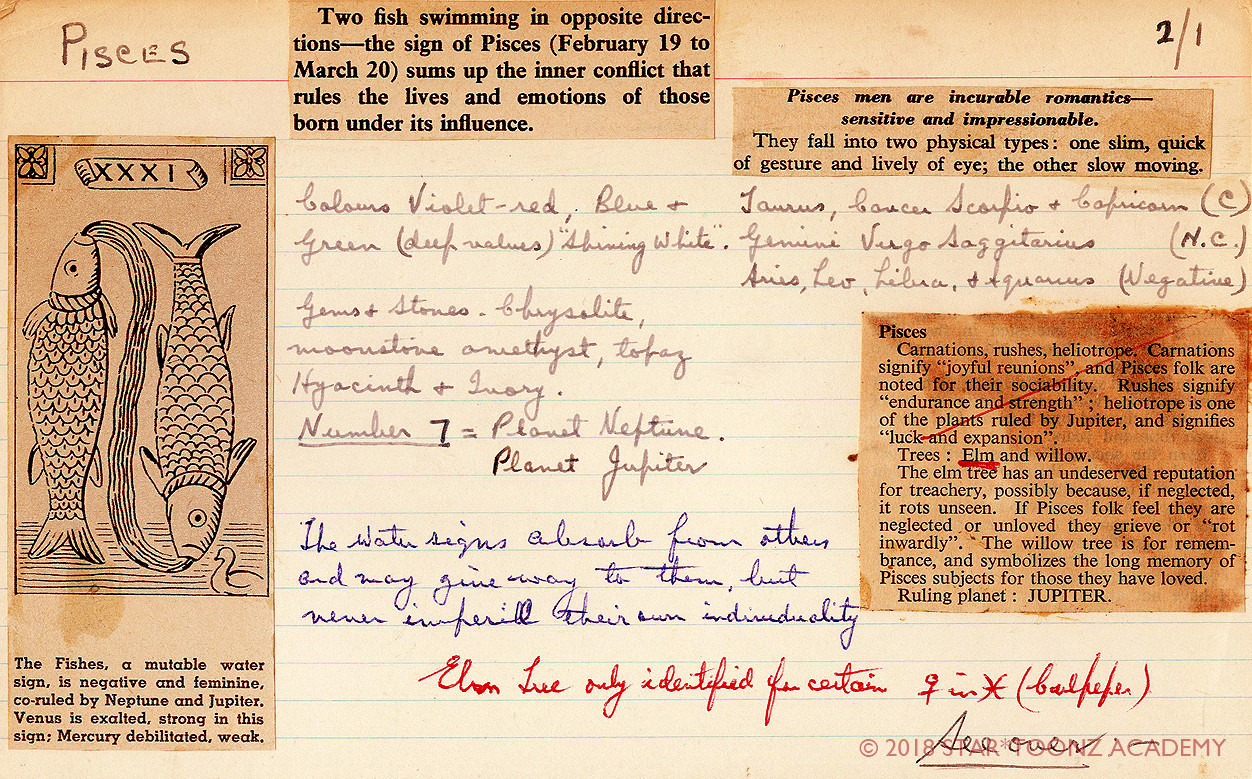 Pisces
2/1
Two fish swimming in opposite direc-
tions—the sign of Pisces (February 19 to
March 20) sums up the inner conflict that
rules the lives and emotions of those
born under its influence.
Pisces men are incurable romantics—
sensitive and impressionable.
They fall into two physical types: one slim, quick
of gesture and lively of eye; the other slow moving.
XXXI
The Fishes, a mutable water
sign, is negative and feminine,
co-ruled by Neptune and Jupiter.
Venus is exalted, strong in this
sign; Mercury debilitated, weak.
Colours Violet-red, Blue &
Green (deep values) "Shining White".
Gems & Stones. Chrysolite,
moonstone amethyst, topaz
Hyacinth & Ivory.
Number 7 = Planet Neptune.
Planet Jupiter
Taurus, Cancer Scorpio & Capricorn (C)
Gemini Virgo Saggitarius (N.C.)
Aries, Leo, Libra, & Aquarius (Negative)
Pisces
Carnations, rushes, heliotrope. Carnations
signify "joyful reunions", and Pisces folk are
noted for their sociability. Rushes signify
"endurance and strength"; heliotrope is one
of the plants ruled by Jupiter, and signifies
"luck and expansion".
Trees: Elm and willow.
The elm tree has an undeserved reputation
for treachery, possibly because, if neglected,
it rots unseen. If Pisces folk feel they are
neglected or unloved they grieve or "rot
inwardly". The willow tree is for remem-
brance, and symbolizes the long memory of
Pisces subjects for those they have loved.
Ruling planet: JUPITER.
The water signs absorb from others
and may give way to them, but
never imperill their own individuality
Elm Tree only identified for certain ♀ in ♓ (Culpeper)
See over —
© 2018 STAR*TOONZ ACADEMY